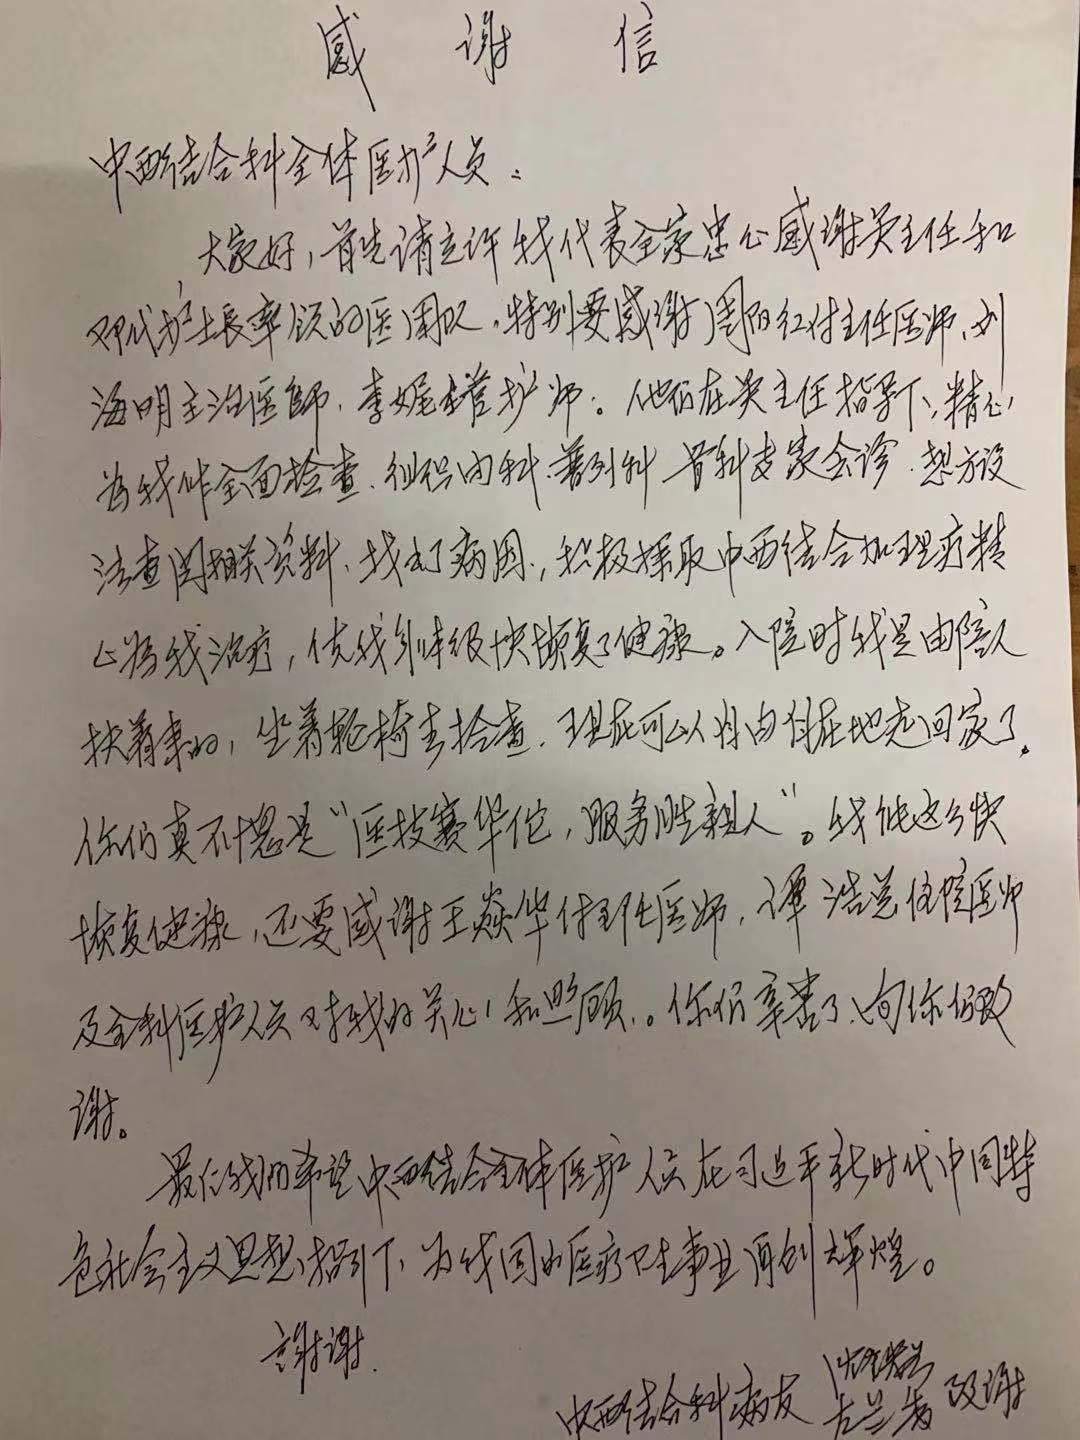 感谢信
中西结合科全体医护人员:
大家好,首先请允许我代表全家忠心感谢吴主任和
邓代护士长率领的医团队,特别要感谢周阳红付主任医师、刘
海明主治医師、李娓主管护师。他们在吴主任指导下,精心
为我作全面检查、组织内科、普外科、骨科专家会诊、想方设
法查阅相关资料、找出了病因,积极採取中西结合加理疗精
心为我治疗,使我身体级快恢复了健康。入院时我是由陪人
扶着来的,坐着轮椅去检查、现在可以自由自在地走回家了。
你们真不愧是“医技赛华佗,服务胜親人”。我能这么快
恢复健康,还要感谢王焱华付主任医师,谭浩总住院医师
及全科医护人员对我的关心和照顾。你们辛苦了、向你们致
谢。
最后我们希望中西结合全体医护人员在习近平新时代中国特
色社会主义思想指引下、为我国的医疗卫生事业再创辉煌。
謝谢.
中西结合科病友
古兰香 致谢